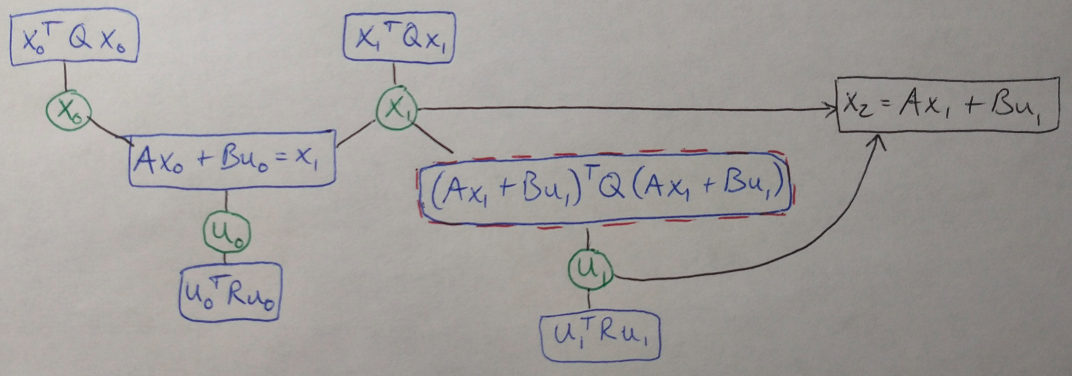 x₀ᵀ Q x₀
x₁ᵀ Q x₁
x₀
x₁
x₂ = Ax₁ + Bu₁
Ax₀ + Bu₀ = x₁
(Ax₁ + Bu₁)ᵀ Q (Ax₁ + Bu₁)
u₀
u₁
u₀ᵀ R u₀
u₁ᵀ R u₁